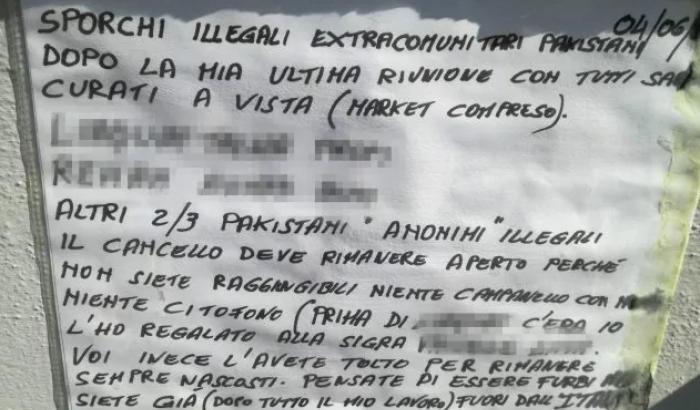 SPORCHI ILLEGALI EXTRACOMUNITARI PAKISTANI 04/06/
DOPO LA MIA ULTIMA RIUNIONE CON TUTTI
CURATI A VISTA (MARKET COMPRESO).
ALTRI 2/3 PAKISTANI "ANONIMI" ILLEGALI
IL CANCELLO DEVE RIMANERE APERTO PERCHÉ
NON SIETE RAGGIUNGIBILI NIENTE CAMPANELLO CON
NIENTE CITOFONO (PRIMA DI C'ERA IO
L'HO REGALATO ALLA SIGRA
VOI INECE L'AVETE TOLTO PER RIMANERE
SEMPRE NASCOSTI. PENSATE DI ESSERE FURBI
SIETE GIÀ (DOPO TUTTO IL MIO LAVORO) FUORI DALL'ITALI